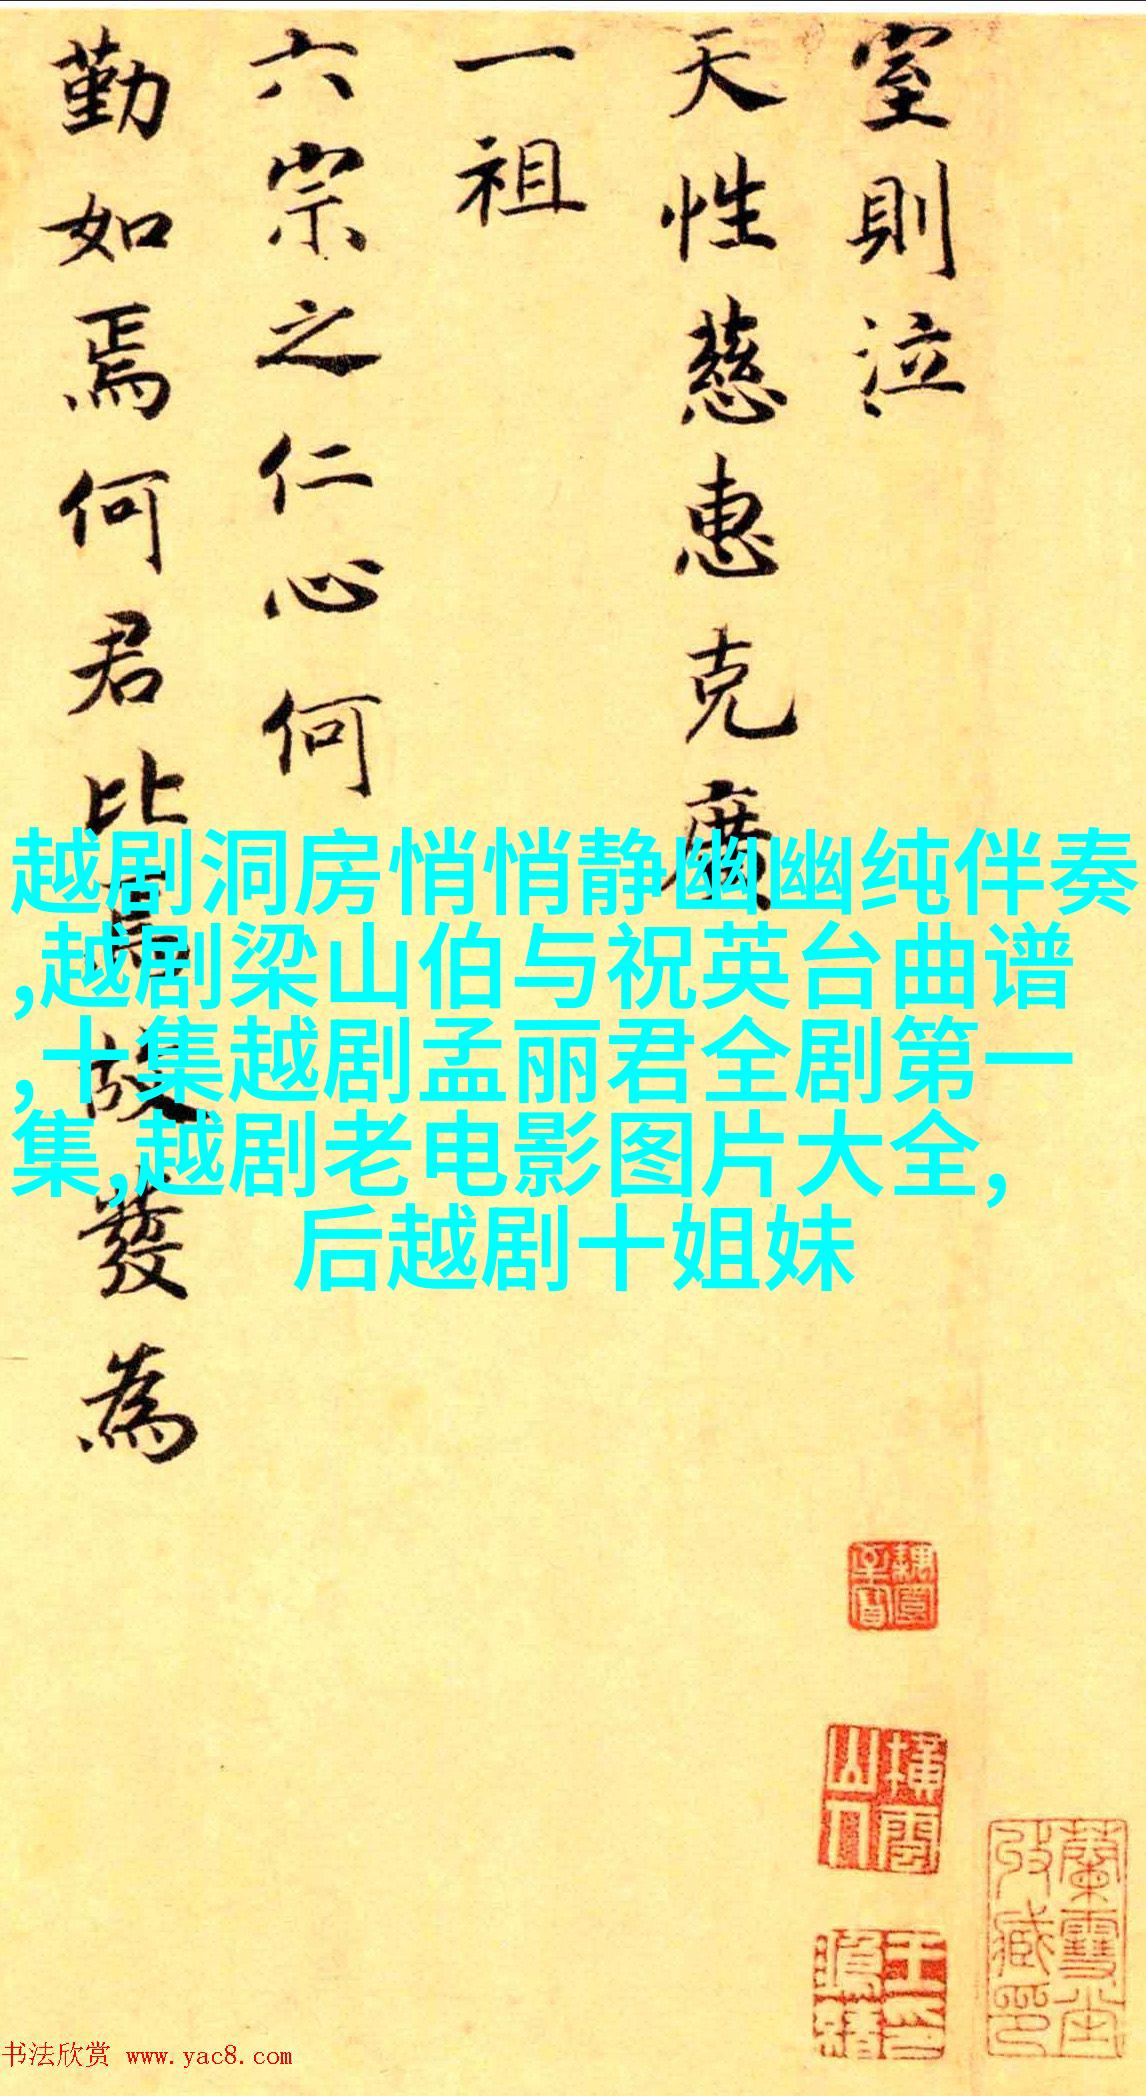 室則泣
天性慈惠克廣
一祖
六宗之仁心何
勤如焉何君比焉故發為
越剧洞房悄悄静幽幽纯伴奏
,越剧梁山伯与祝英台曲谱
,十集越剧孟丽君全剧第一
集,越剧老电影图片大全,
后越剧十姐妹
横雲山人
蘭雪堂收藏印
书法欣赏 www.yac8.com